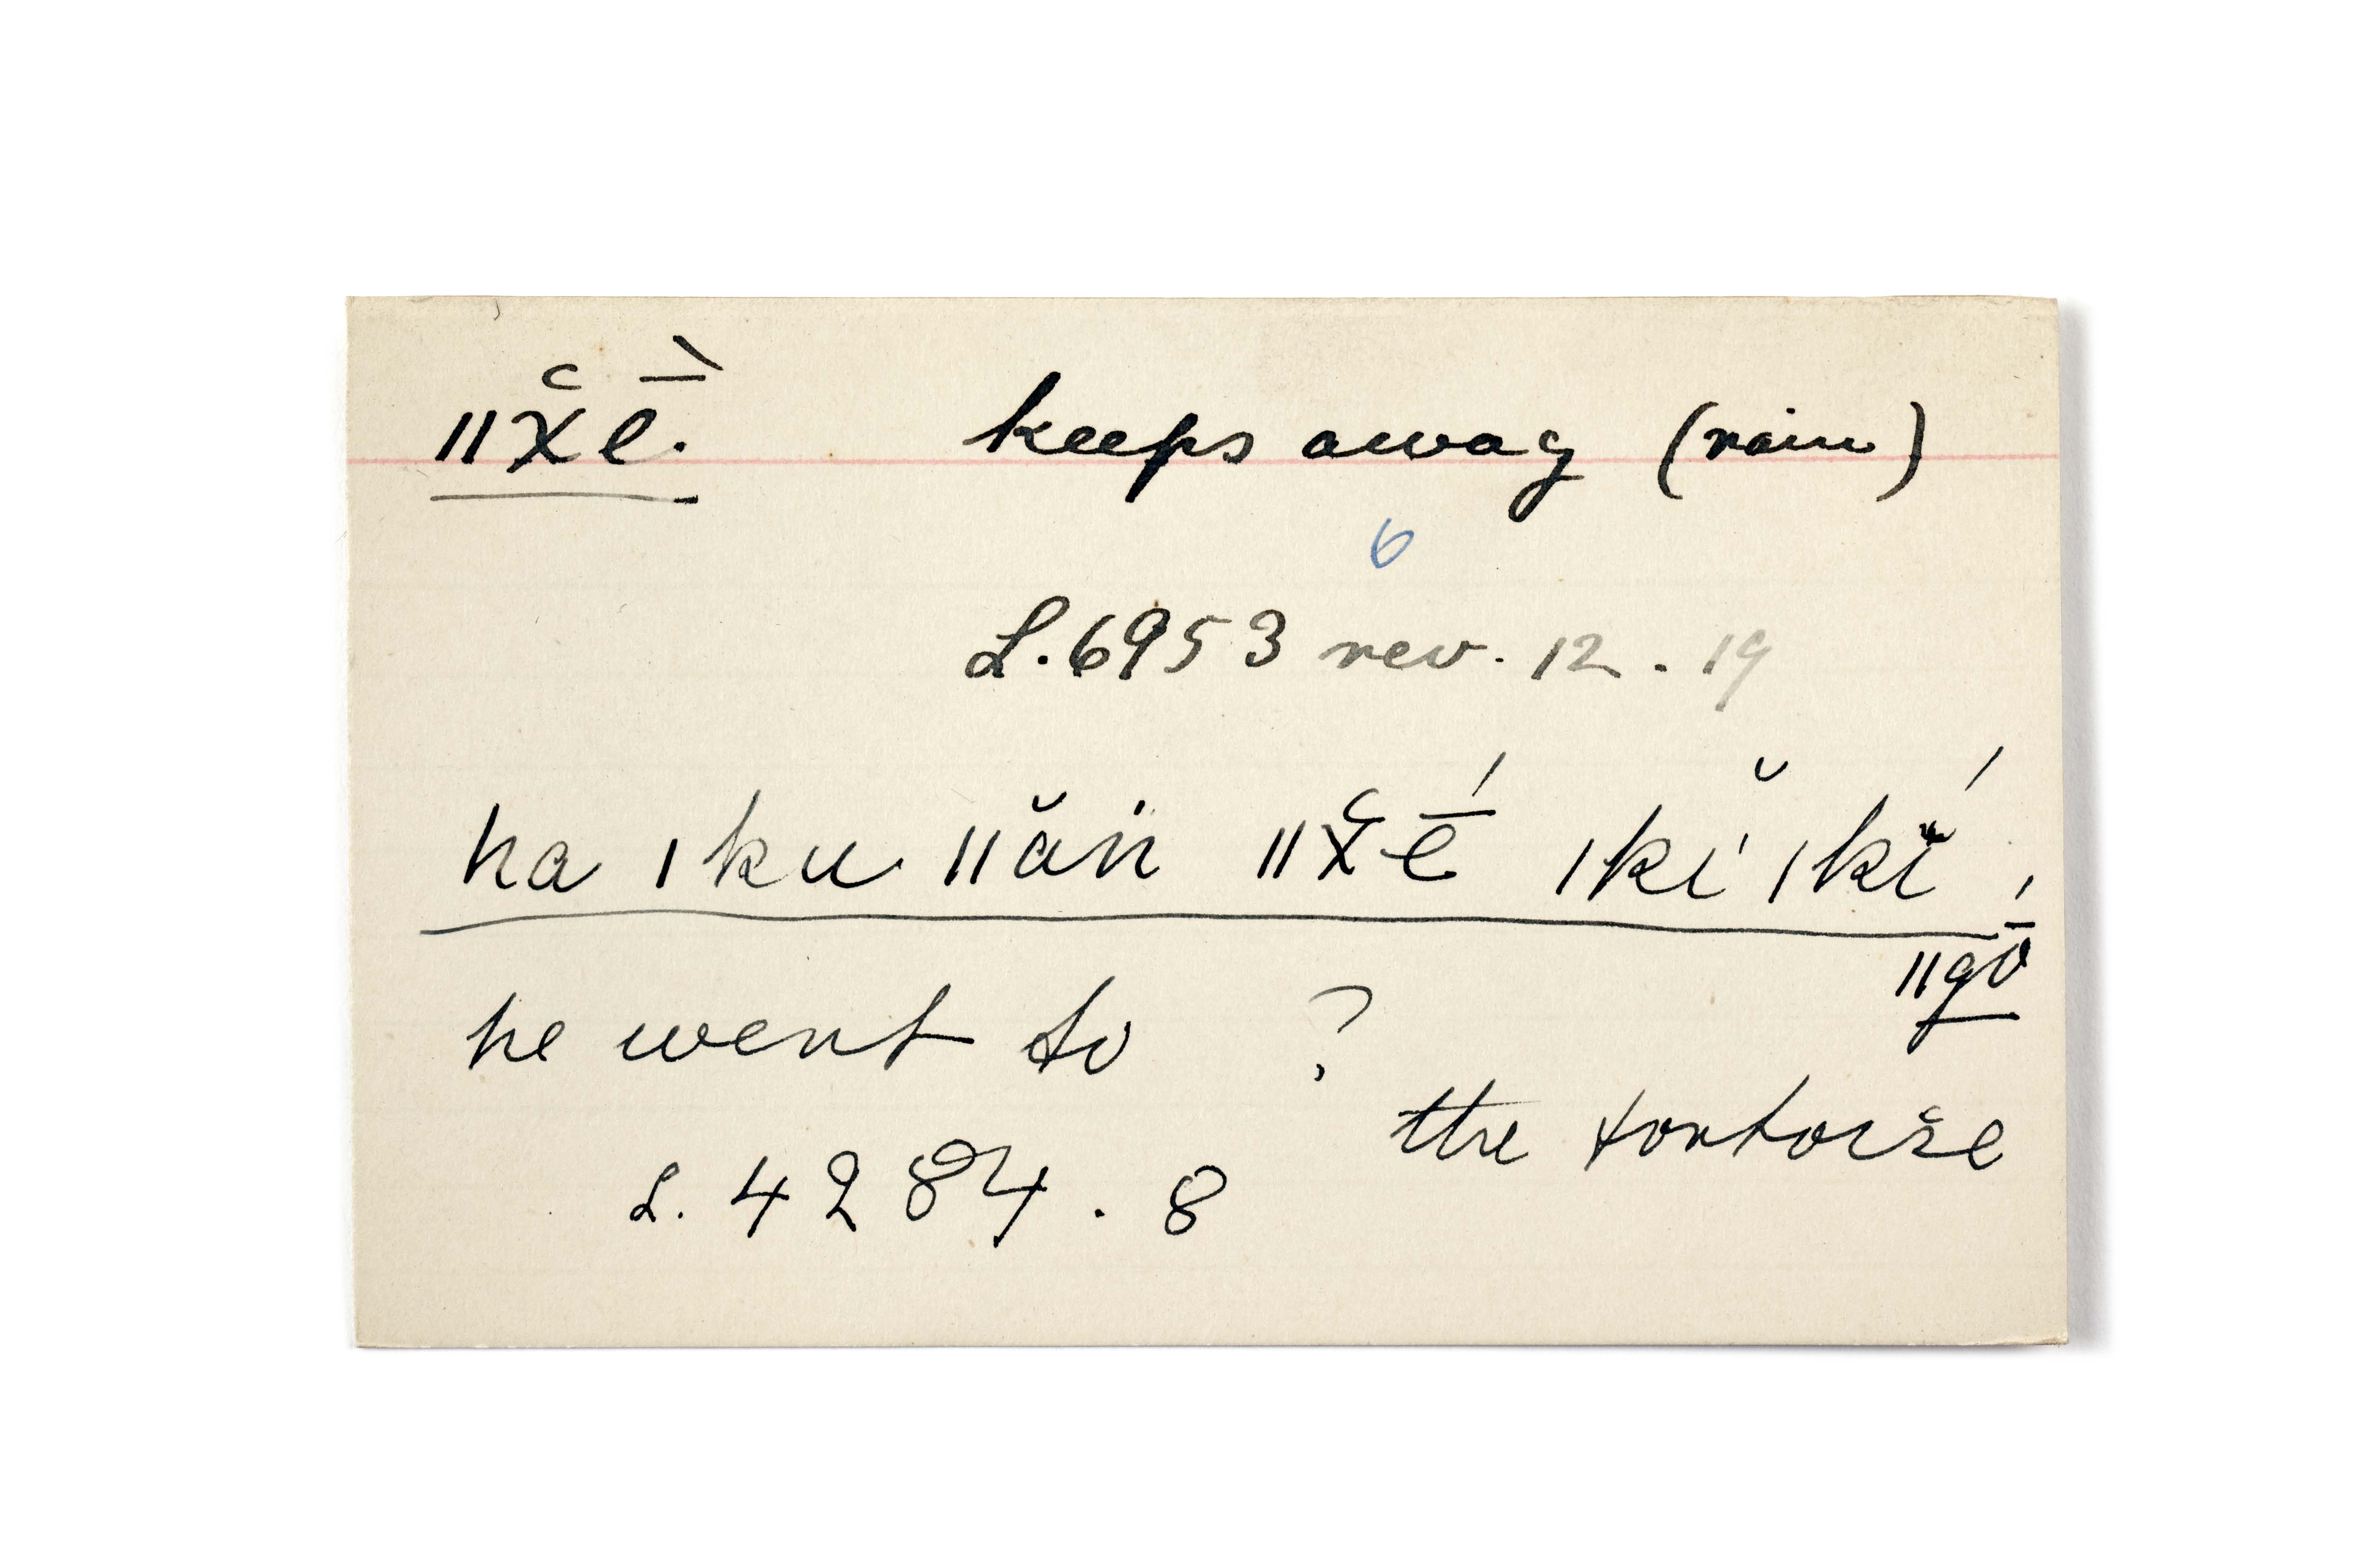 ǁχ̆ḕ. keeps away (rain)
6
L.6953 rev. 12.19
ha ǀku ǁăṅ ǁχ̆ḗ ǀkĭ ǀkí
ǁgṓ
he went to ?
the tortoise
L. 4284.8